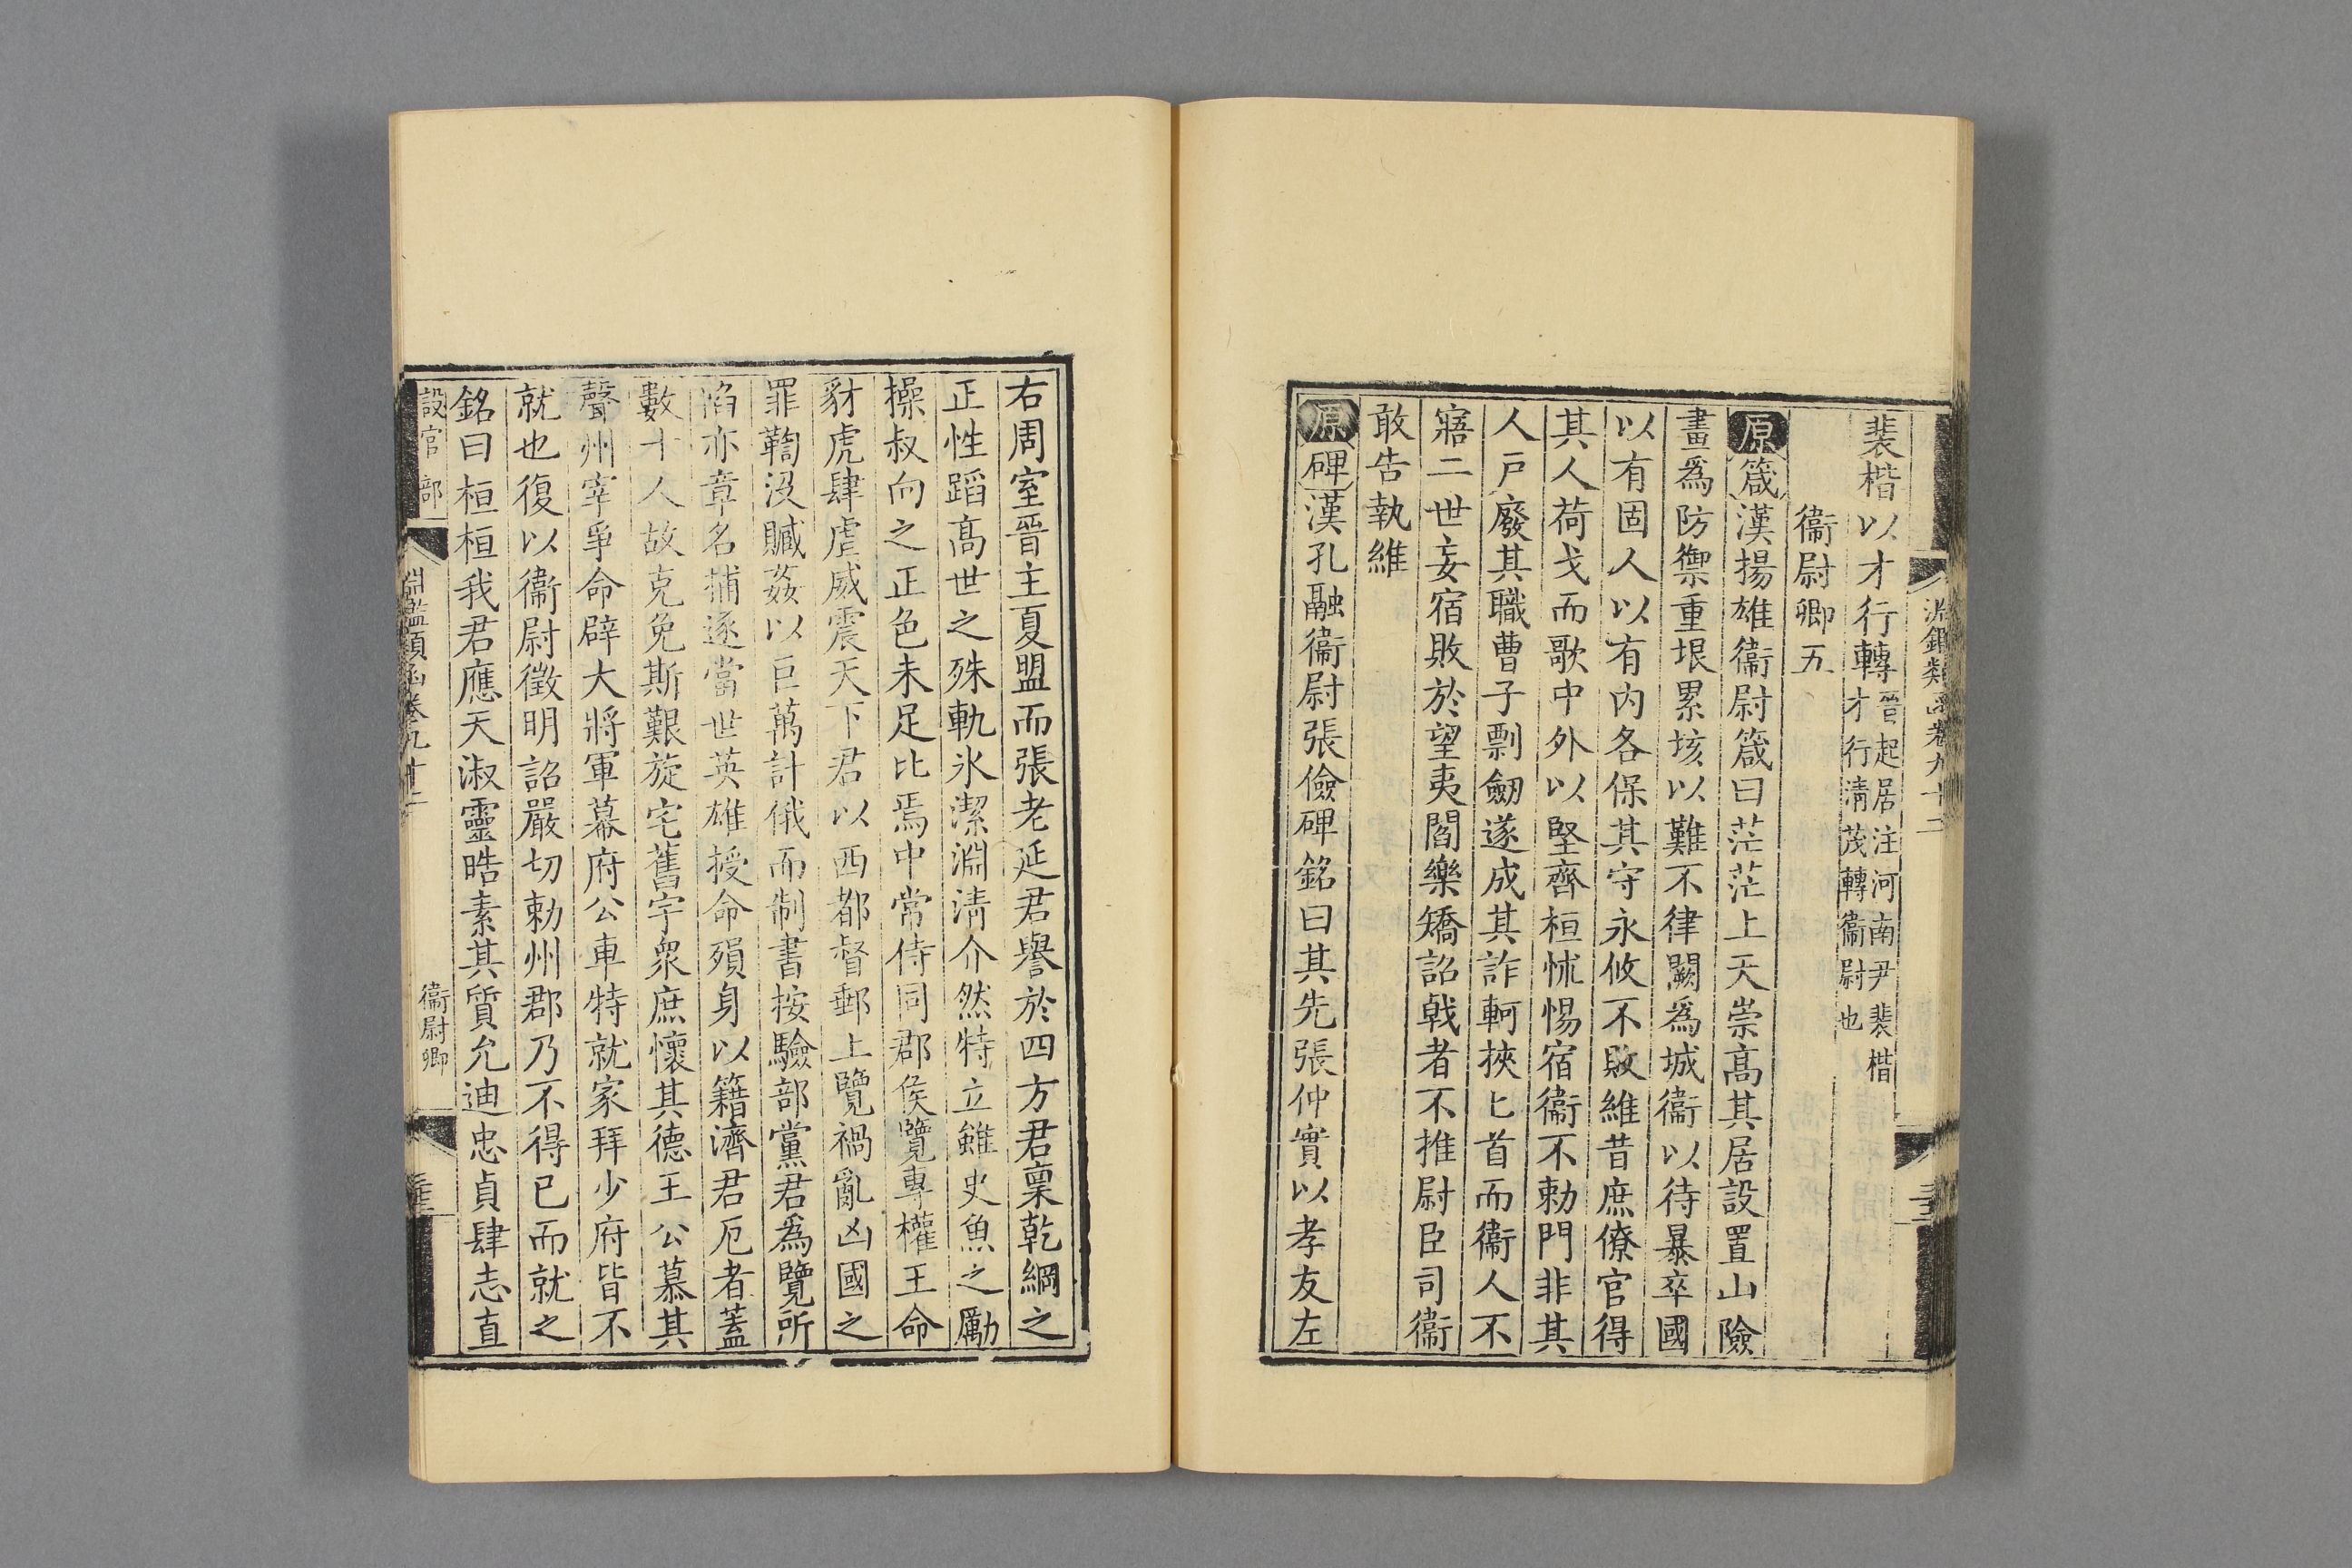 淵鑑類函卷九十二
裴楷以才行轉晉起居注河南尹裴楷才行清茂轉衞尉也
衞尉卿五
原箴漢揚雄衞尉箴曰茫茫上天崇高其居設置山險
畫爲防禦重垠累垓以難不律闕爲城衞以待暴卒國
以有固人以有內各保其守永攸不敗維昔庶僚官得
其人荷戈而歌中外以堅齊桓怵惕宿衞不勅門非其
人戶廢其職曹子剽劒遂成其詐軻挾匕首而衞人不
寤二世妄宿敗於望夷閻樂矯詔戟者不推尉臣司衞
敢告執維
原碑漢孔融衞尉張儉碑銘曰其先張仲實以孝友左
右周室晉主夏盟而張老延君譽於四方君稟乾綱之
正性蹈高世之殊軌氷潔淵清介然特立雖史魚之勵
操叔向之正色未足比焉中常侍同郡侯覽專權王命
豺虎肆虐威震天下君以西都督郵上覽禍亂凶國之
罪鞫沒贓姦以巨萬計俄而制書按驗部黨君爲覽所
陷亦章名捕逐當世英雄授命殞身以籍濟君厄者蓋
數十人故克免斯艱旋宅舊宇衆庶懷其德王公慕其
聲州宰爭命辟大將軍幕府公車特就家拜少府皆不
就也復以衞尉徵明詔嚴切勅州郡乃不得已而就之
銘曰桓桓我君應天淑靈晧素其質允迪忠貞肆志直
設官部
淵鑑類函卷九十二
衞尉卿